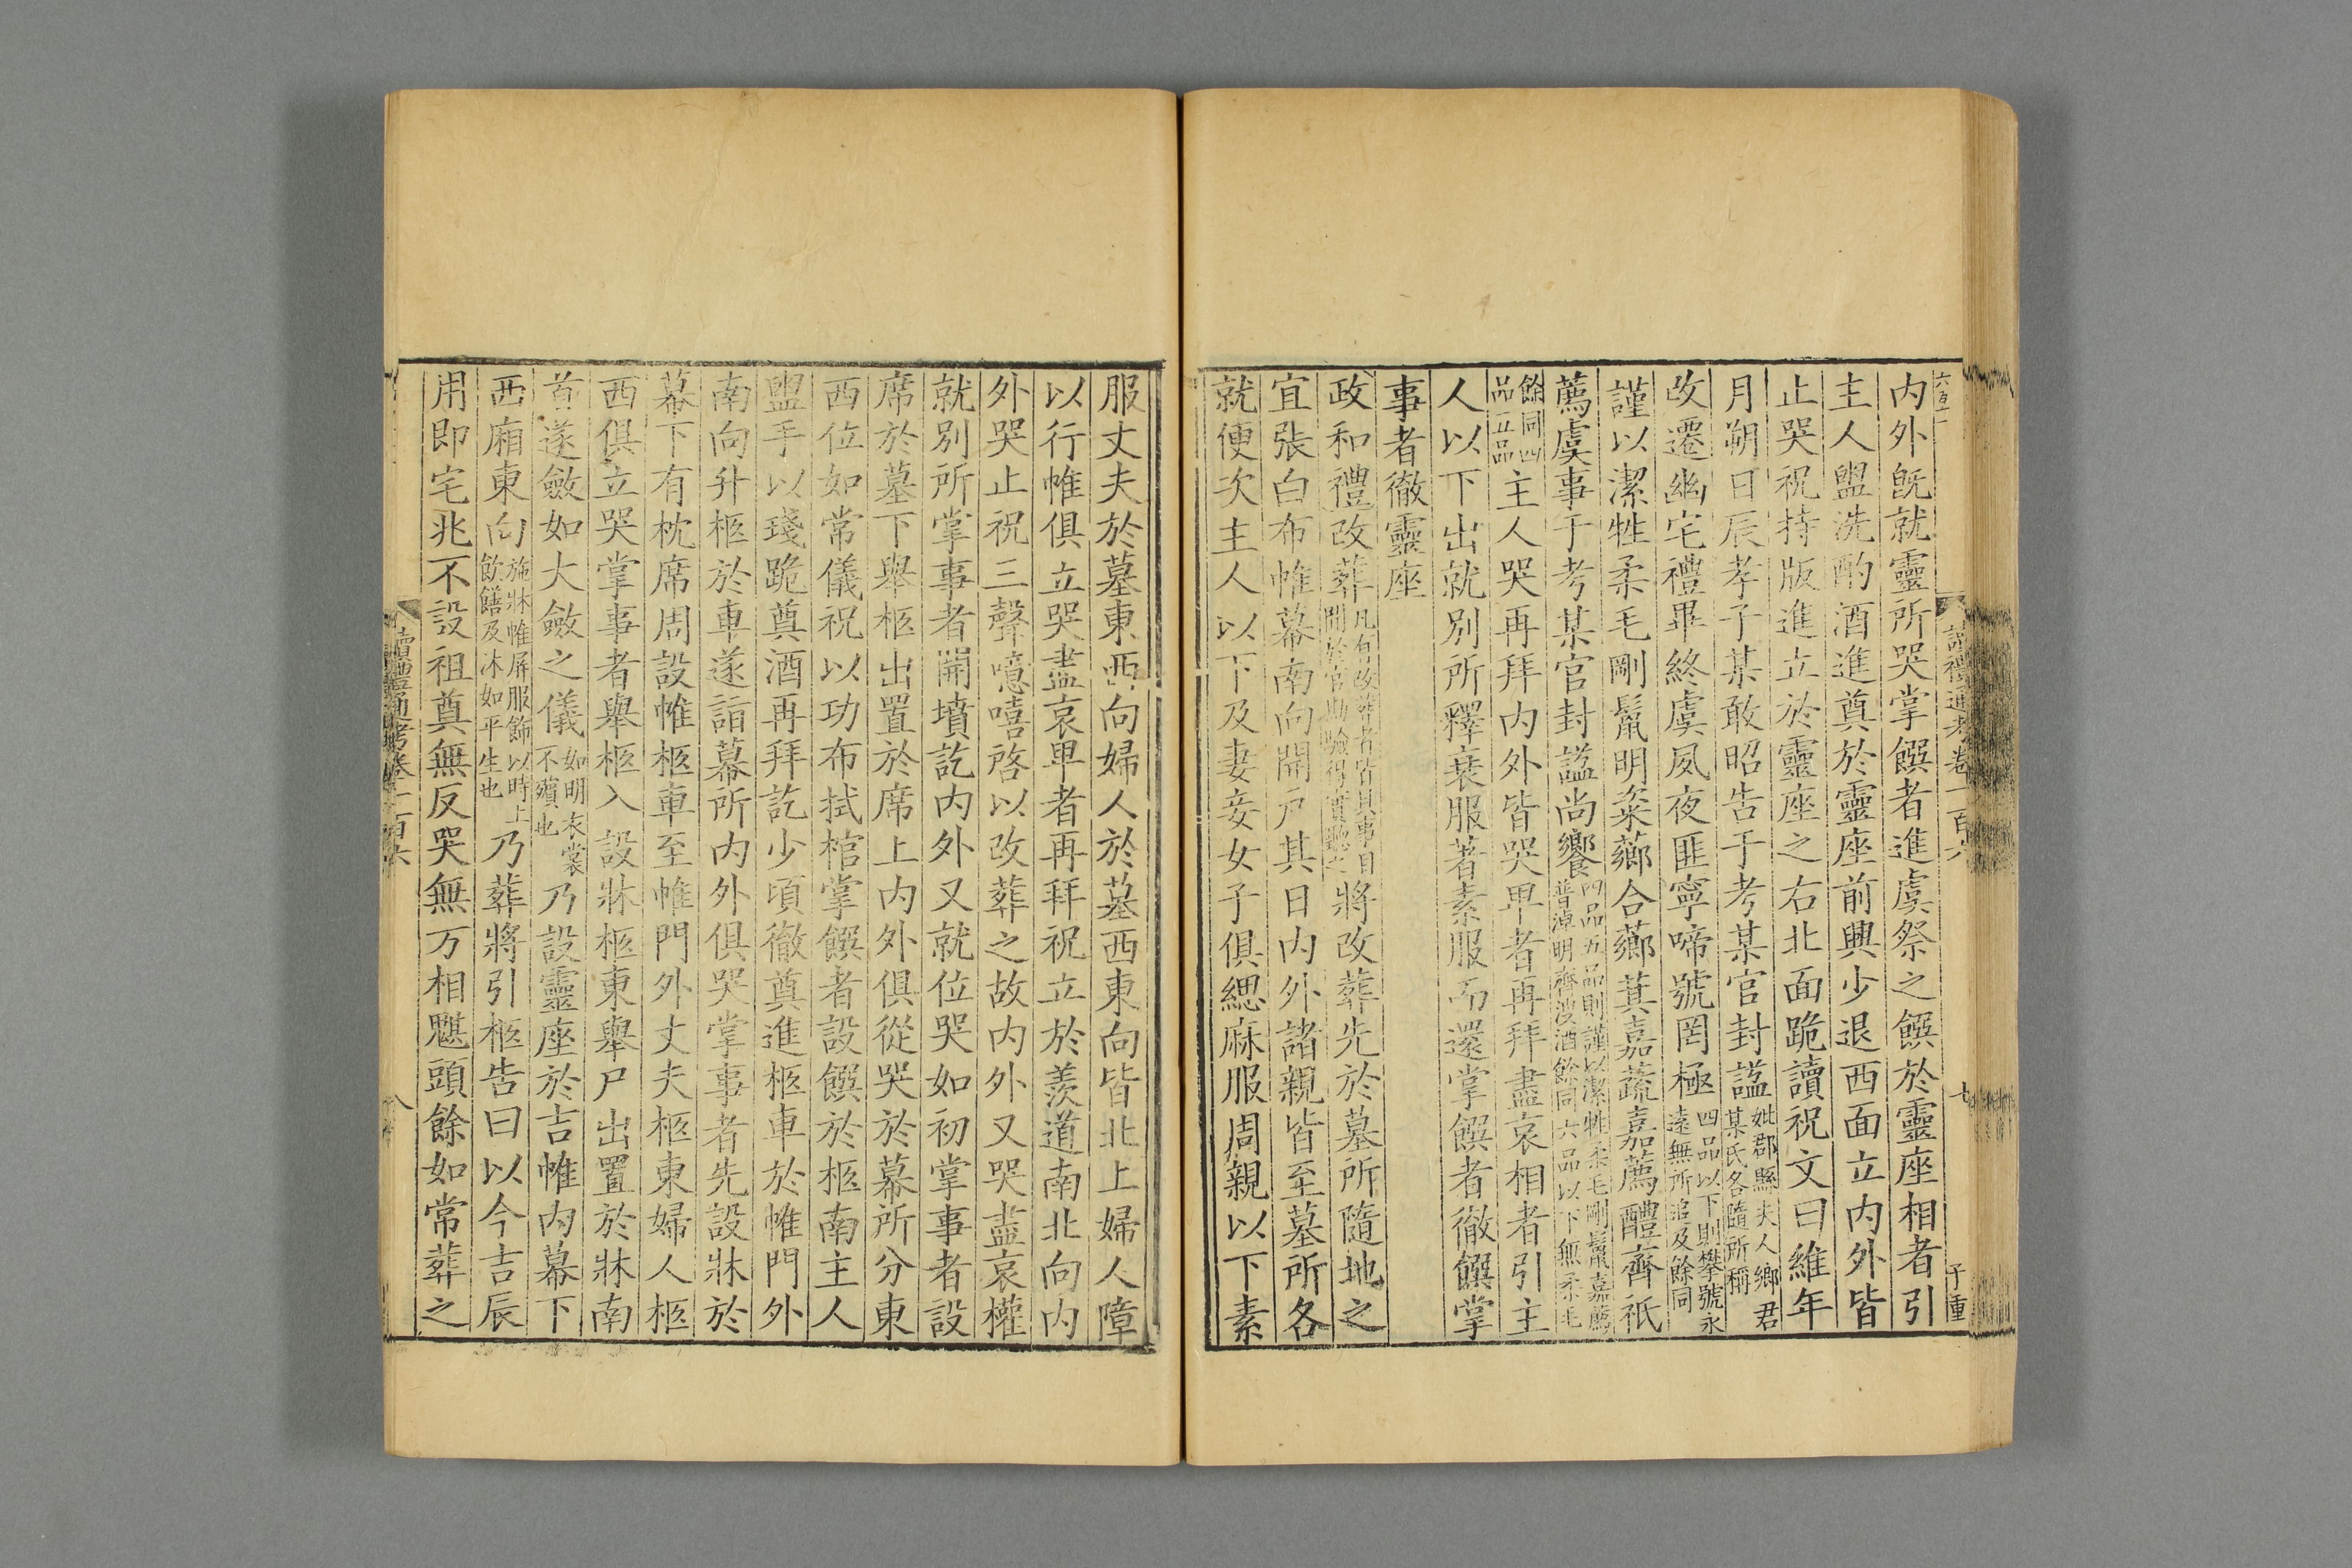 内外旣就靈所哭掌饌者進虞祭之饌於靈座相者引
主人盥洗酌酒進奠於靈座前興少退西面立内外皆
止哭祝持版進立於靈座之右北面跪讀祝文曰維年
月朔日辰孝子某敢昭告于考某官封諡妣郡縣夫人鄉君某氏各隨所稱
改遷幽宅禮畢終虞夙夜匪寧啼號罔極四品以下則攀號永遠無所追及餘同
謹以潔牲柔毛剛鬣明粢薌合薌萁嘉蔬嘉薦醴齊祇
薦虞事于考某官封諡尚饗四品五品則謹以潔牲柔毛剛鬣嘉薦普淖明齊溲酒餘同六品以下無柔毛
餘同四品五品主人哭再拜内外皆哭卑者再拜盡哀相者引主
人以下出就別所釋衰服著素服而還掌饌者徹饌掌
事者徹靈座
政和禮改葬凡有改葬者皆具事目聞於官勘驗得實聽之將改葬先於墓所隨地之
宜張白布帷幕南向開戶其日内外諸親皆至墓所各
就便次主人以下及妻妾女子俱緦麻服周親以下素
服丈夫於墓東西向婦人於墓西東向皆北上婦人障
以行帷俱立哭盡哀卑者再拜祝立於羨道南北向内
外哭止祝三聲噫嘻啓以改葬之故内外又哭盡哀權
就別所掌事者開墳訖内外又就位哭如初掌事者設
席於墓下舉柩出置於席上内外俱從哭於幕所分東
西位如常儀祝以功布拭棺掌饌者設饌於柩南主人
盥手以琖跪奠酒再拜訖少頃徹奠進柩車於帷門外
南向升柩於車遂詣幕所内外俱哭掌事者先設牀於
幕下有枕席周設帷柩車至帷門外丈夫柩東婦人柩
西俱立哭掌事者舉柩入設牀柩東舉尸出置於牀南
首遂斂如大斂之儀如明衣裳不殯也乃設靈座於吉帷内幕下
西廂東向施牀帷屏服飾以時上飲饍及沐如平生也乃葬將引柩告曰以今吉辰
用即宅兆不設祖奠無反哭無方相魌頭餘如常葬之
讀禮通考卷一百六
八